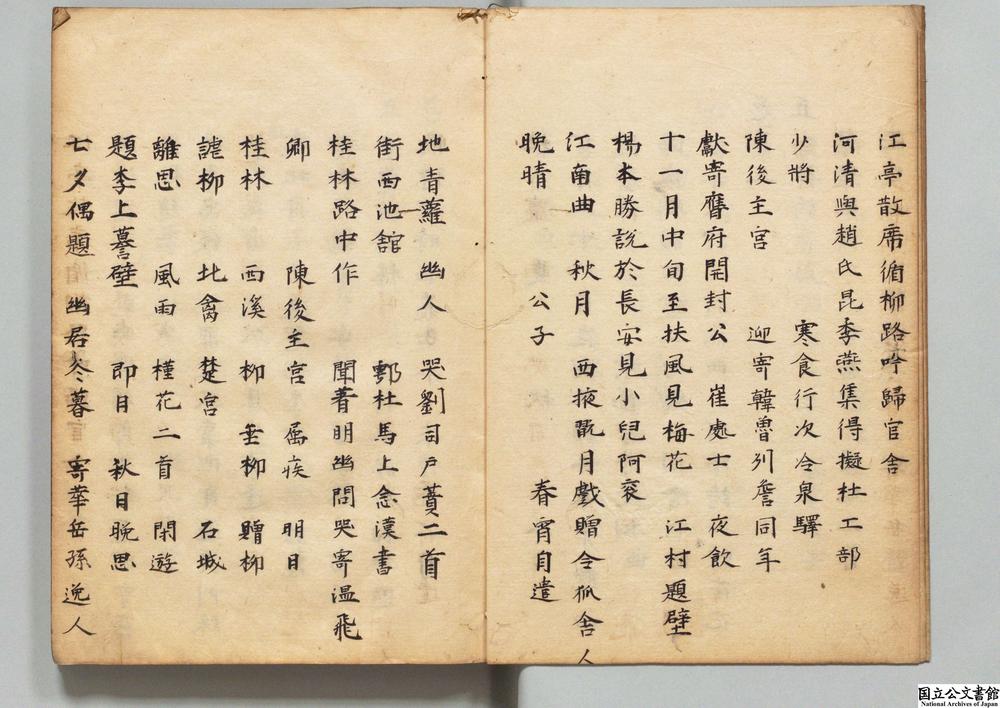 江亭散席循柳路吟歸官舍
河清與趙氏昆季燕集得擬杜工部
少將 寒食行次冷泉驛
陳後主宮 迎寄韓魯州詹同年
獻寄舊府開封公 崔處士 夜飲
十一月中旬至扶風見梅花 江村題壁
楊本勝說於長安見小兒阿衮
江南曲 秋月 西掖翫月戲贈令狐舍人
晩晴 公子 春宵自遣
地青蘿 幽人 哭劉司戶蕡二首
街西池舘 鄠杜馬上念漢書
桂林路中作 聞著明幽問哭寄温飛
卿 陳後主宮 屬疾 明日
桂林 西溪 柳 垂柳 贈柳
謔柳 北禽 楚宮 石城
離思 風雨 槿花二首 閑遊
題李上謩壁 即日 秋日晩思
七夕偶題 幽居冬暮 寄華岳孫逸人
国立公文書館
National Archives of Japan